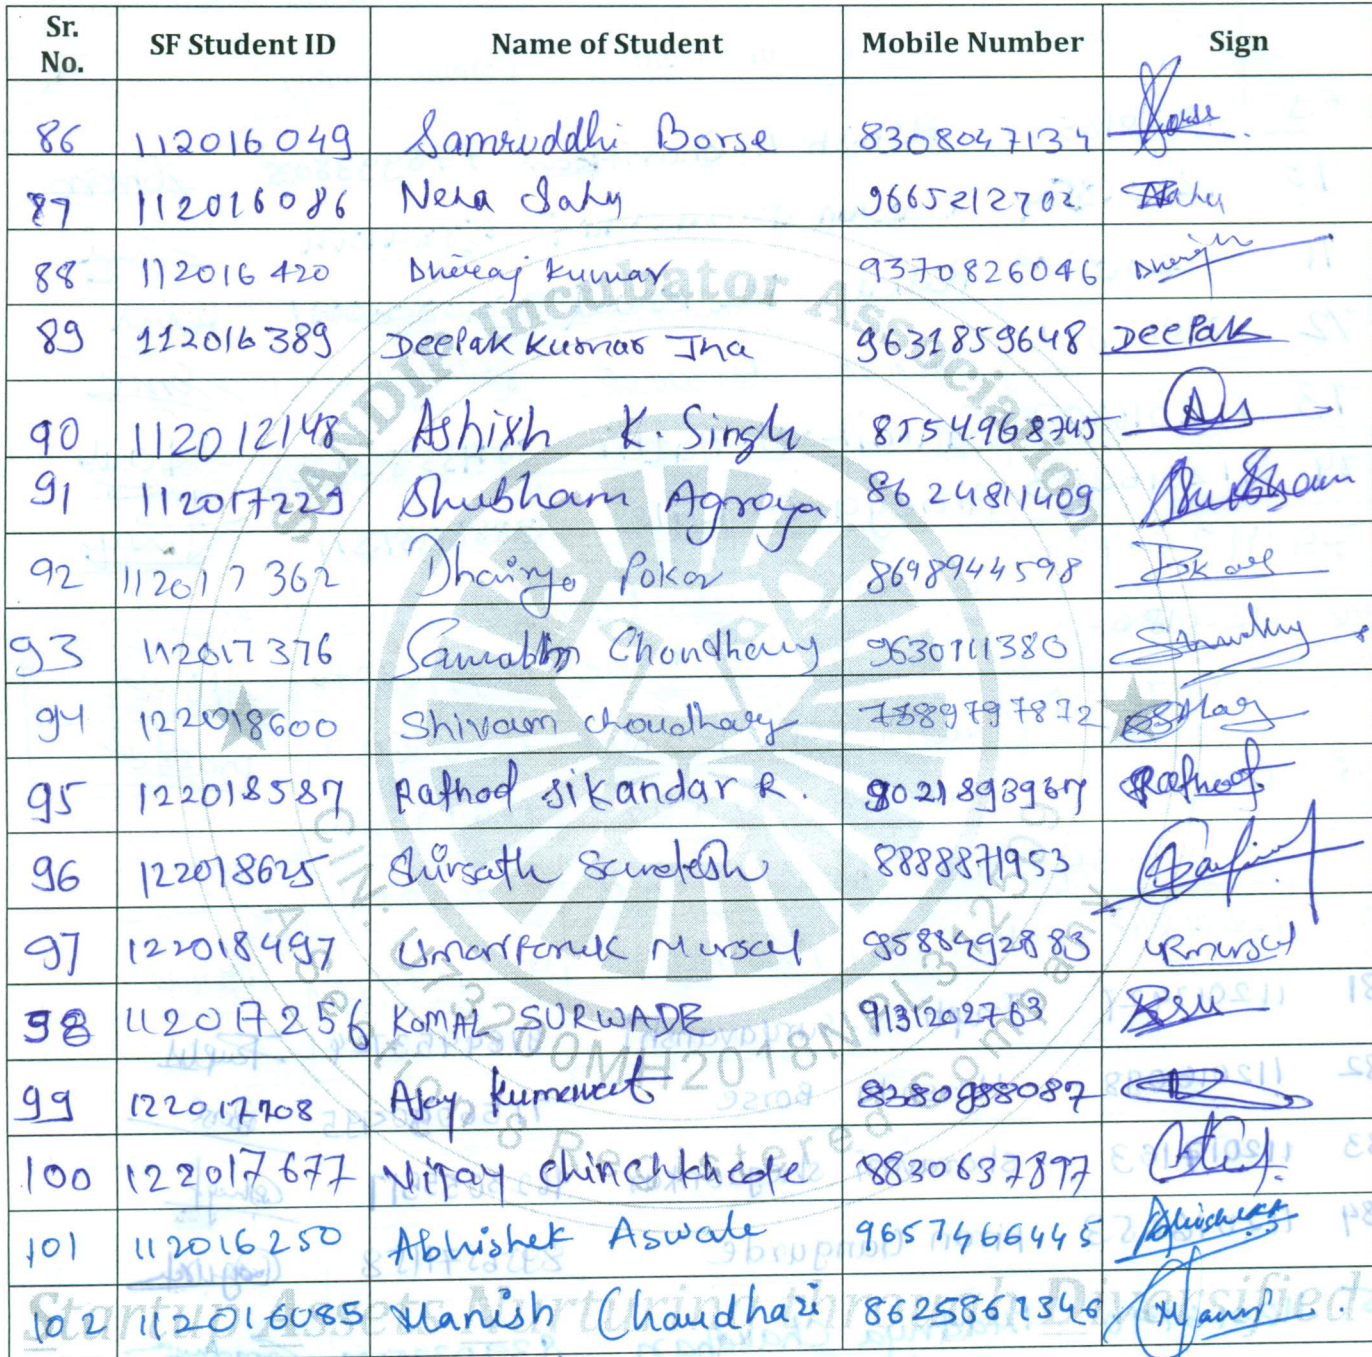 Sr. No. SF Student ID Name of Student Mobile Number Sign
86 112016049 Samruddhi Borse 8308047134 Borse
87 112016086 Neha Sahu 9665212702
88 112016420 Dheeraj Kumar 9370826046 Dheeraj
89 112016389 Deepak Kumar Jha 9631859648 Deepak
90 112012148 Ashish K. Singh 8554968745
91 112017229 Shubham Agroya 8624811409 Shubham
92 112017362 Dhairya Pokar 8698944598
93 112017376 Choudhary 9630111380
94 122018600 Shivam choudhary 7389797872
95 122018587 Rathod Sikandar R. 9021893967 Rathod
96 122018625 Shirsath Sandesh 8888871953
97 122018497 Umarfaruk Mursal 9588492883 URmursal
98 112017256 KOMAL SURWADE 9131202763
99 122017708 Ajay Kumawat 8380988087
100 122017677 Vijay Chinchkhede 8830637897
101 112016250 Abhishek Aswale 9657466445 Abhishek
102 112016085 Manish Chaudhari 8625861346
SANDIP Incubator Association
CIN: U73200MH2018NPL312509
A Section 8 Registered Company
Startup Assets Nurturing through Diversified